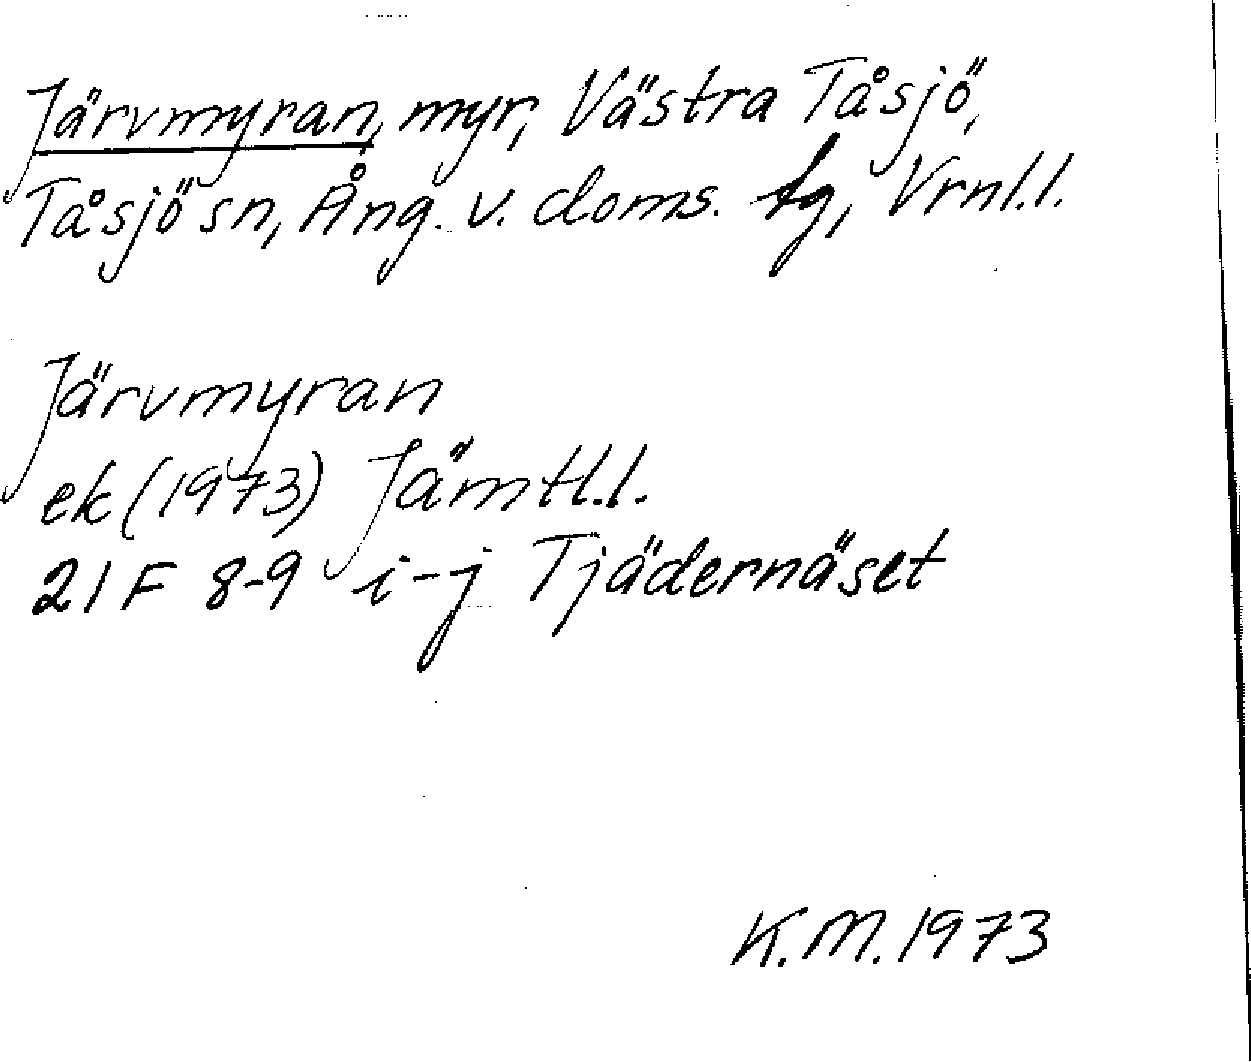 Järvmyran, myr, Västra Tåsjö,
Tåsjö sn, Ång. v. doms. tg, Vrnl.l.
Järvmyran
ek (1973) Jämtl.l.
21 F 8-9 i-j Tjädernäset
K.M. 1973